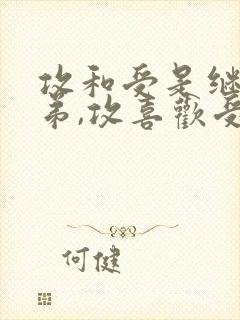 攻和受是继
弟,攻喜歡受
何健